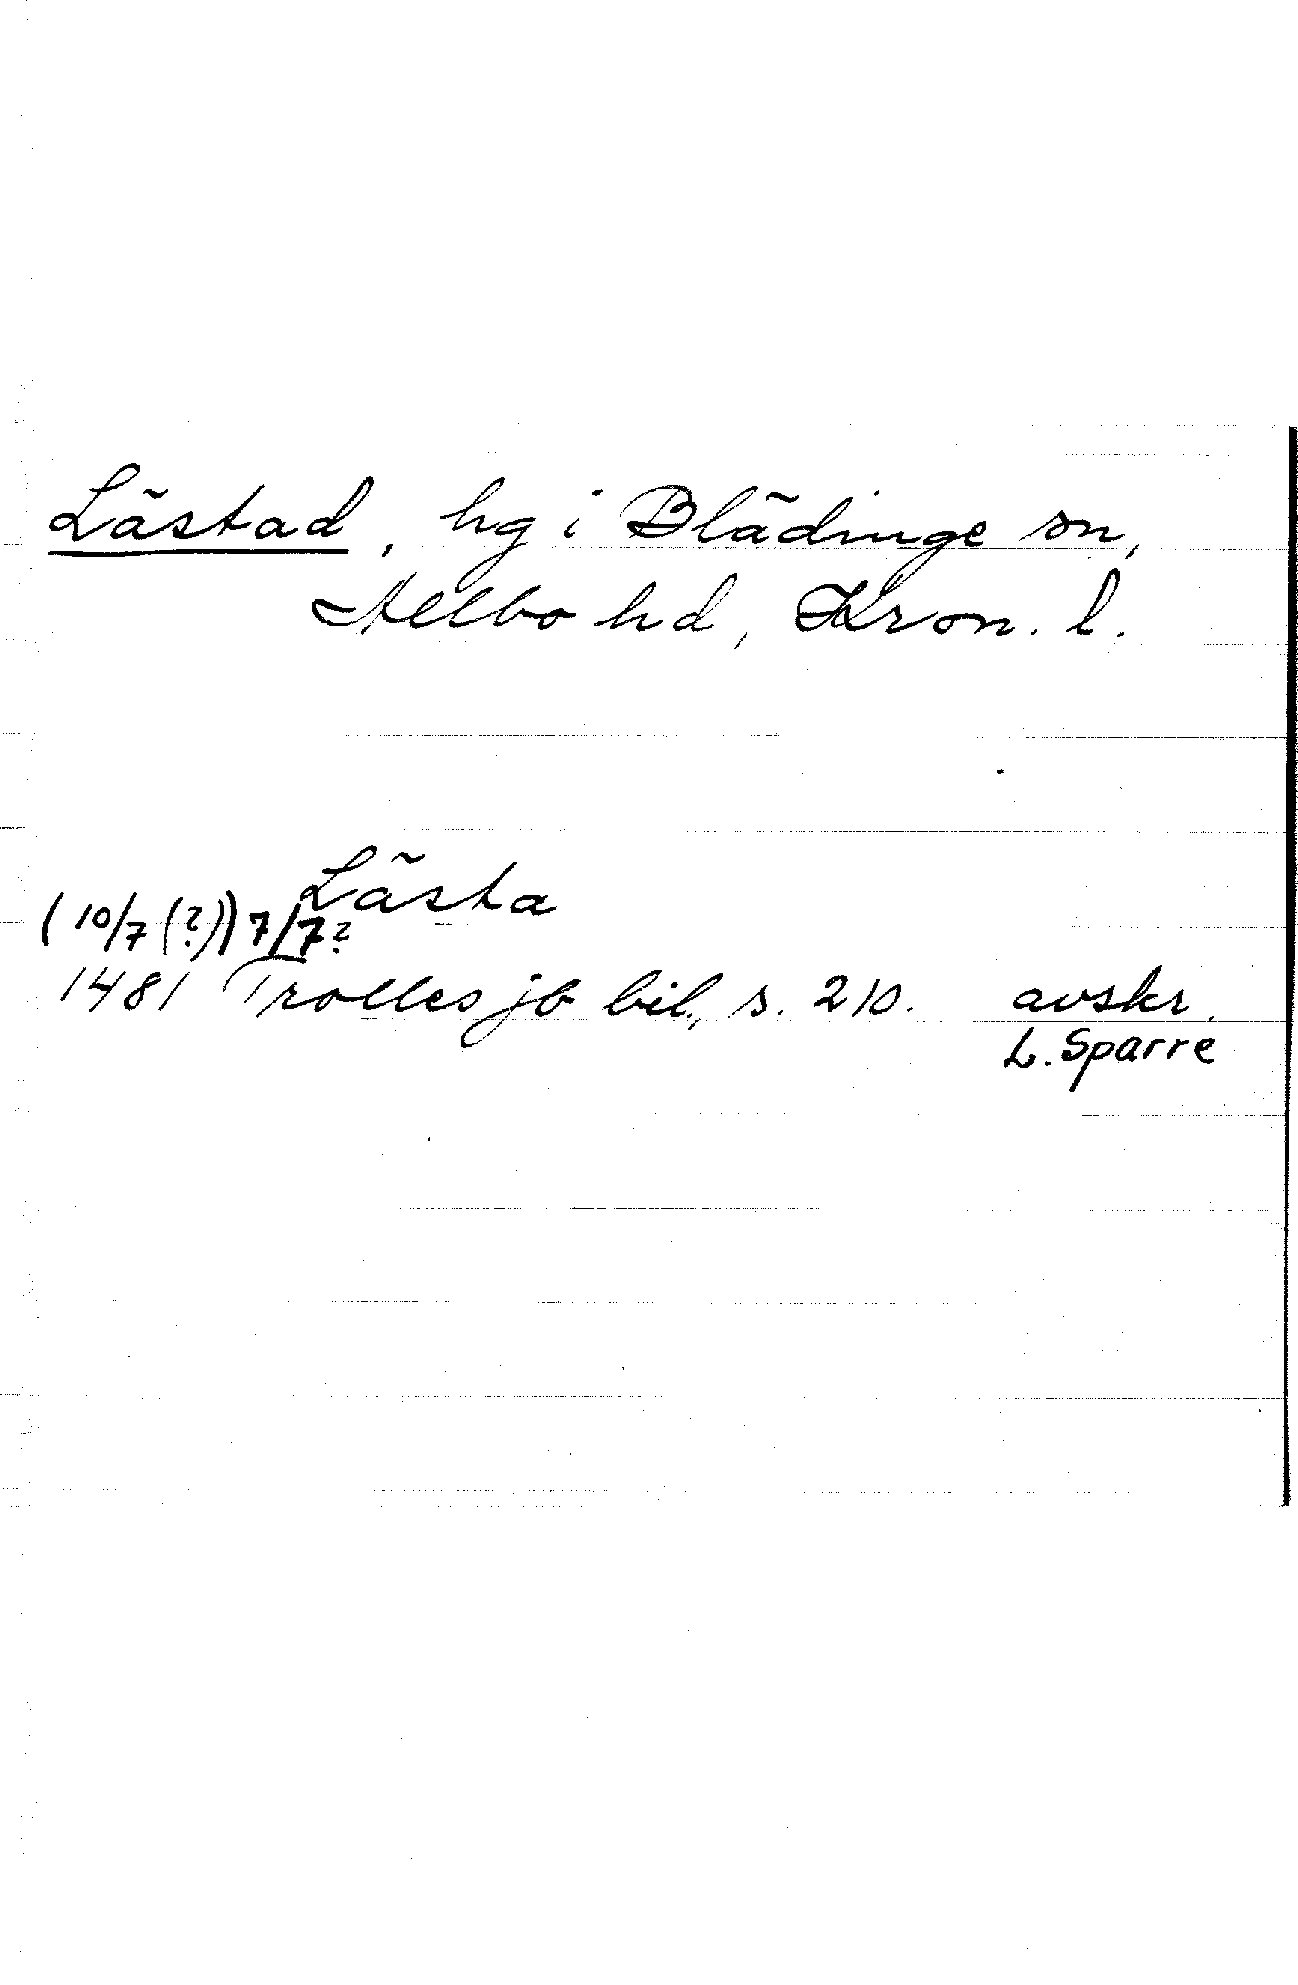 Lästad, hg i Blädinge sn,
Allbo hd, Kron. l.
Lästa
(10/7 (?)) 7/7?
1481 Trolles jb bil, s. 210. avskr.
L. Sparre